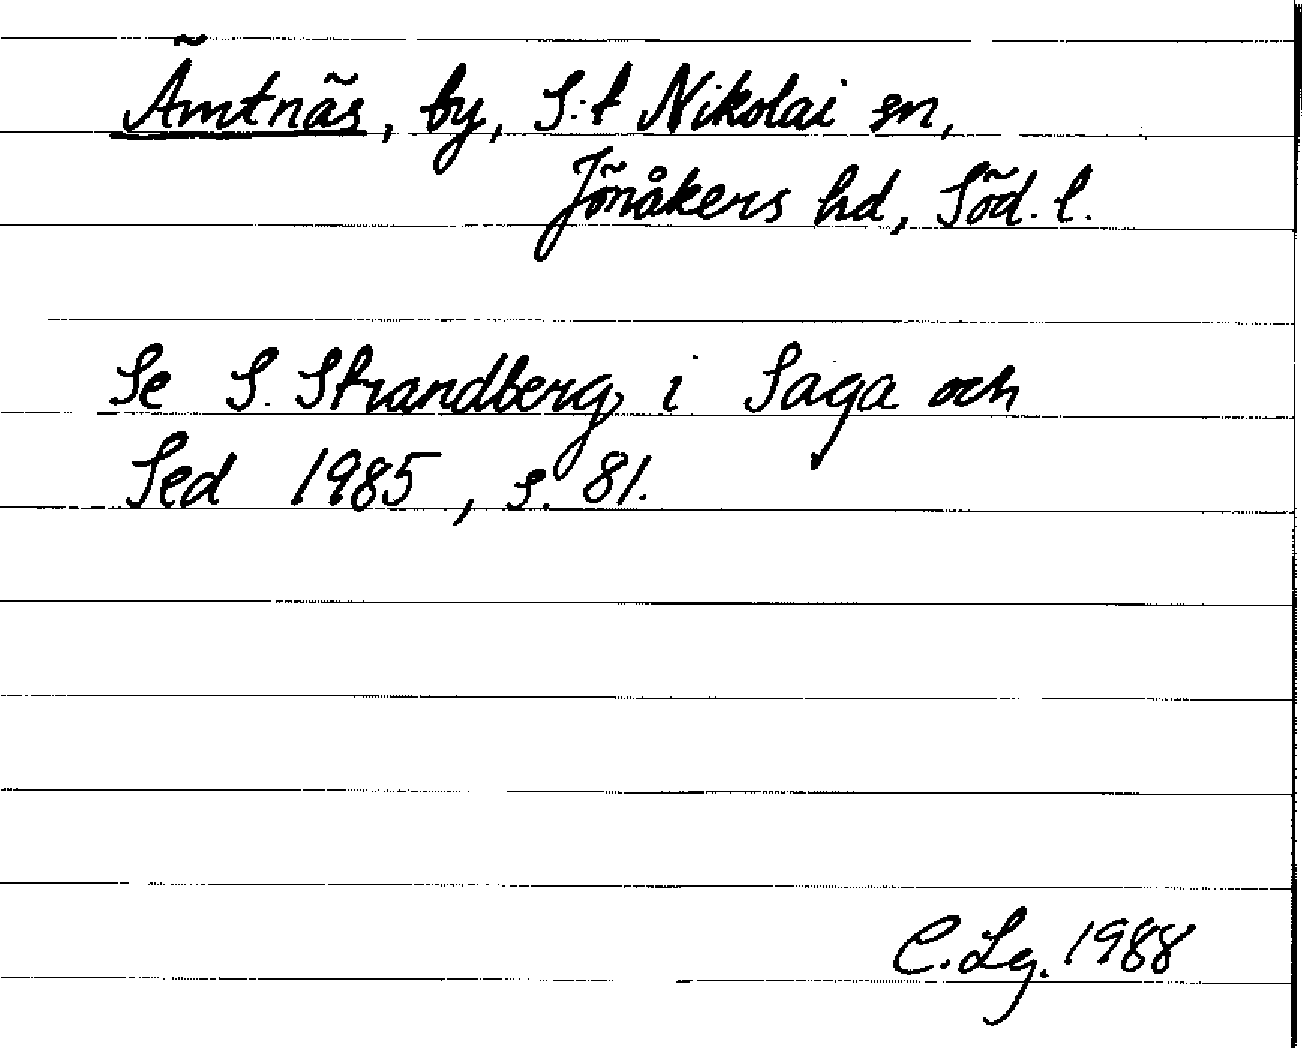 Ämtnäs, by, S:t Nikolai sn,
Jönåkers hd, Söd. l.
Se S. Strandberg i Saga och
Sed 1985, s. 81.
C. Lg. 1988